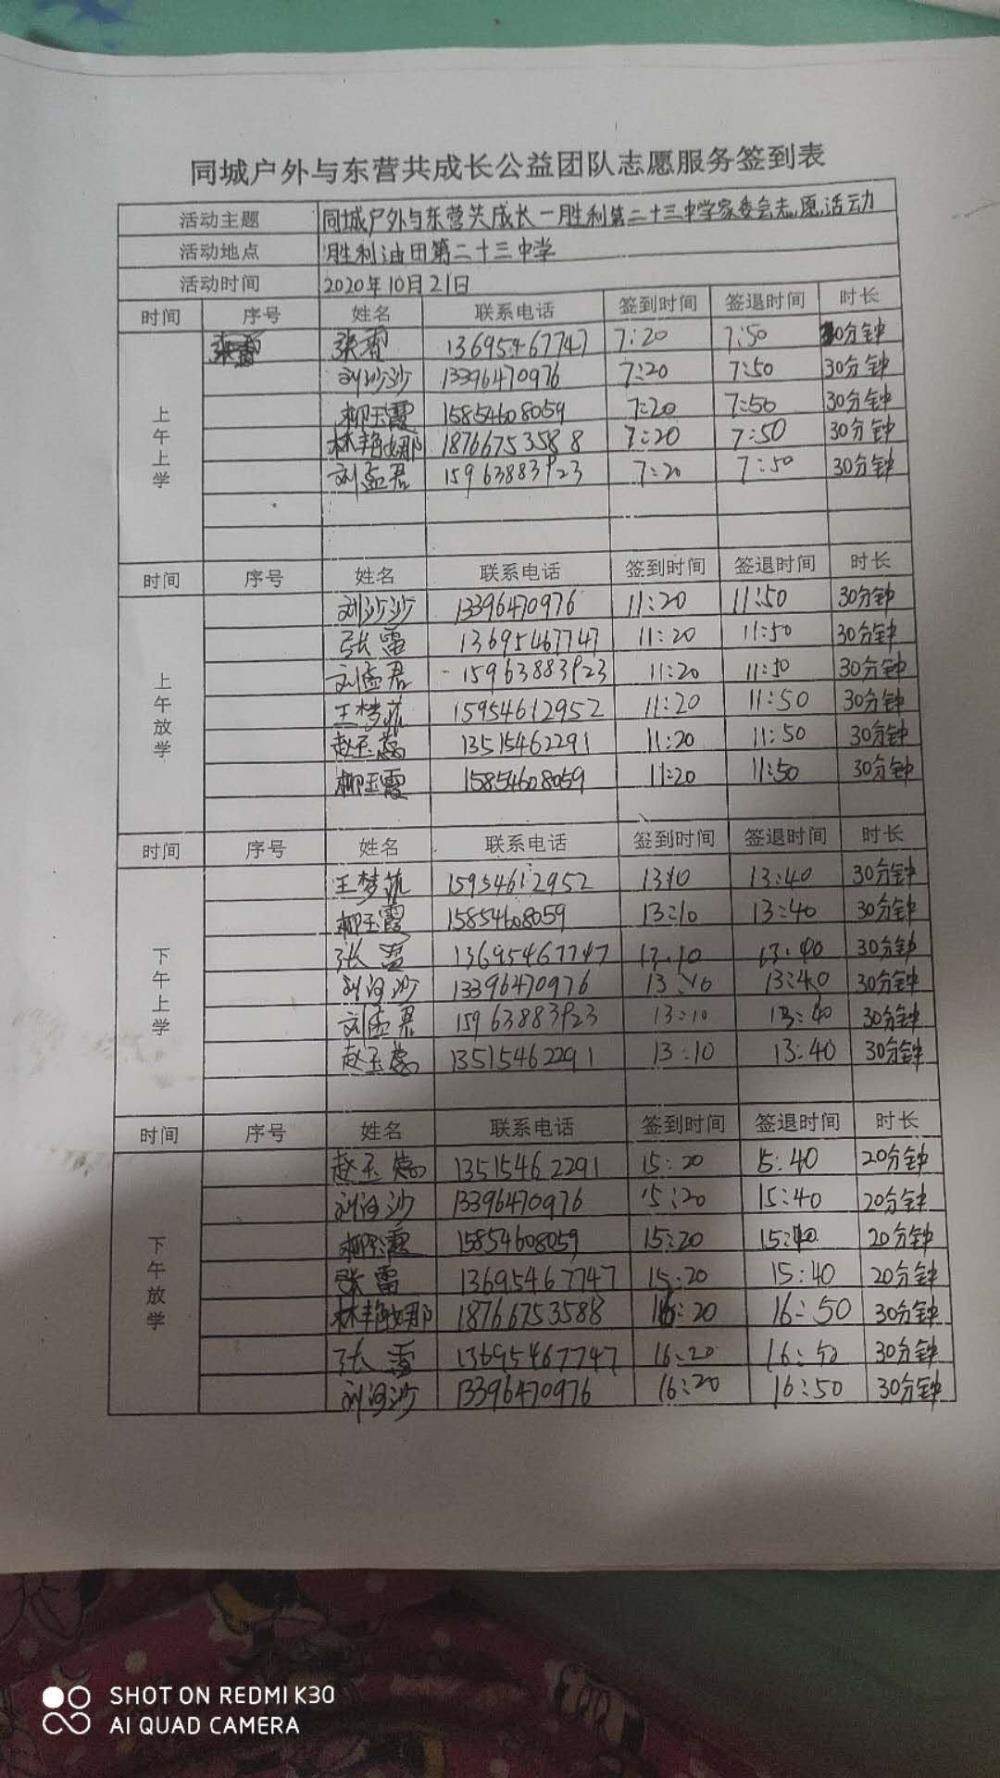 同城户外与东营共成长公益团队志愿服务签到表
活动主题 同城户外与东营共成长一胜利第二十三中学家委会志愿活动
活动地点 胜利油田第二十三中学
活动时间 2020年10月21日
时间 序号 姓名 联系电话 签到时间 签退时间 时长
上午上学
张雷 13695467747 7:20 7:50 30分钟
刘沙沙 13396470976 7:20 7:50 30分钟
柳玉霞 15854608059 7:20 7:50 30分钟
林艳娜 18766753588 7:20 7:50 30分钟
刘孟君 15963883923 7:20 7:50 30分钟
时间 序号 姓名 联系电话 签到时间 签退时间 时长
上午放学
刘沙沙 13396470976 11:20 11:50 30分钟
张雷 13695467747 11:20 11:50 30分钟
刘孟君 15963883923 11:20 11:50 30分钟
王梦 15954612952 11:20 11:50 30分钟
赵玉蕊 13515462291 11:20 11:50 30分钟
柳玉霞 15854608059 11:20 11:50 30分钟
时间 序号 姓名 联系电话 签到时间 签退时间 时长
下午上学
王梦 15954612952 13:10 13:40 30分钟
柳玉霞 15854608059 13:10 13:40 30分钟
张雷 13695467747 13:10 13:40 30分钟
刘沙沙 13396470976 13:10 13:40 30分钟
刘孟君 15963883923 13:10 13:40 30分钟
赵玉蕊 13515462291 13:10 13:40 30分钟
时间 序号 姓名 联系电话 签到时间 签退时间 时长
下午放学
赵玉蕊 13515462291 15:20 15:40 20分钟
刘沙沙 13396470976 15:20 15:40 20分钟
柳玉霞 15854608059 15:20 15:40 20分钟
张雷 13695467747 15:20 15:40 20分钟
林艳娜 18766753588 16:20 16:50 30分钟
张雷 13695467747 16:20 16:50 30分钟
刘沙沙 13396470976 16:20 16:50 30分钟
SHOT ON REDMI K30
AI QUAD CAMERA